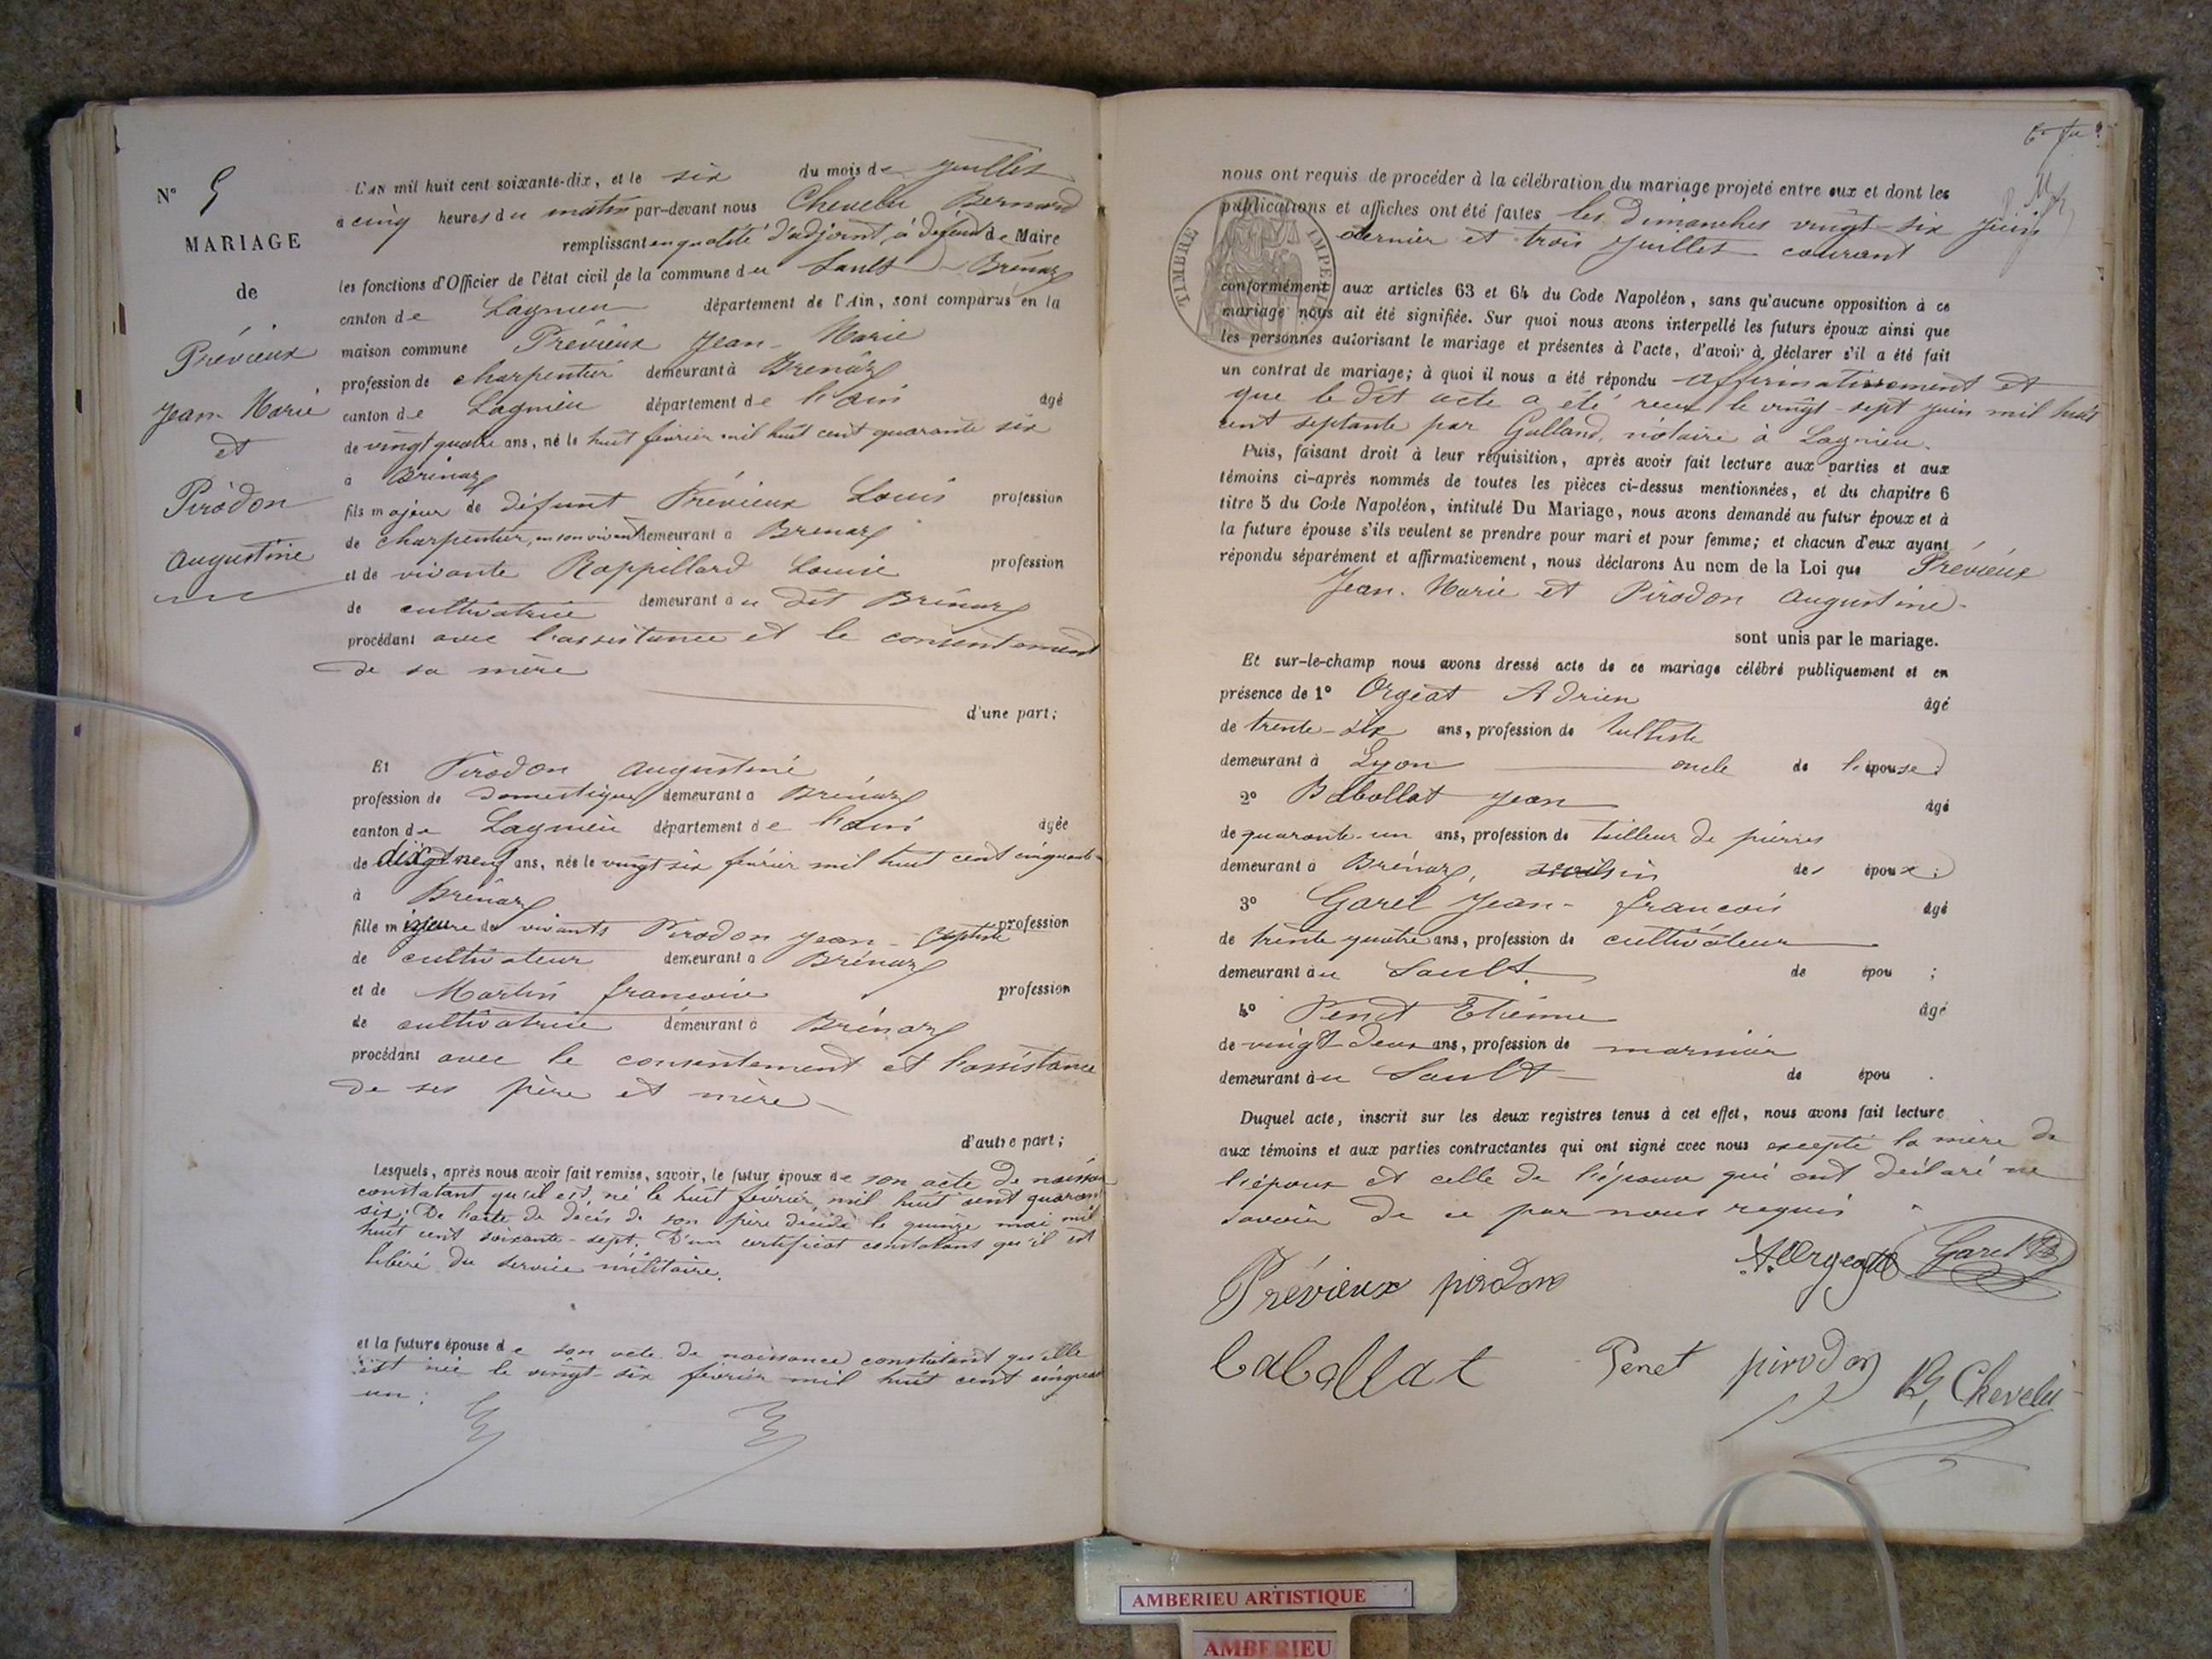 N° 5
MARIAGE
de
Prévieux
Jean-Marie
et
Pirodon
Augustine
L'AN mil huit cent soixante-dix, et le six du mois de juillet
à cinq heures du matin par-devant nous Chevelu Bernard
remplissant en qualité d'adjoint, à défaut de Maire
les fonctions d'Officier de l'état civil de la commune du Sault-Brénaz
canton de Lagnieu département de l'Ain, sont comparus en la
maison commune Prévieux Jean-Marie
profession de charpentier demeurant à Brénaz
canton de Lagnieu département de l'ain âgé
de vingt quatre ans, né le huit février mil huit cent quarante six
à Brénaz
fils majeur de défunt Prévieux Louis profession
de charpentier, en son vivant demeurant à Brenaz
et de vivante Rappillard Louise profession
de cultivatrice demeurant au dit Brénaz
procédant avec l'assistance et le consentement
de sa mère
d'une part;
Et Pirodon Augustine
profession de domestique demeurant à Brénaz
canton de Lagnieu département de l'ain âgée
de dix neuf ans, née le vingt six février mil huit cent cinquante
à Brénaz
fille mineure de vivants Pirodon Jean-Baptiste profession
de cultivateur demeurant à Brénaz
et de Martin françoise profession
de cultivatrice demeurant à Brénaz
procédant avec le consentement et l'assistance
de ses père et mère
d'autre part;
Lesquels, après nous avoir fait remise, savoir, le futur époux de son acte de naissance
constatant qu'il est né le huit février mil huit cent quarante
six; De l'acte de décès de son père décédé le quinze mai mil
huit cent soixante-sept. D'un certificat constatant qu'il est
libéré du service militaire.
et la future épouse de son acte de naissance constatant qu'elle
est née le vingt-six février mil huit cent cinquante
un;
nous ont requis de procéder à la célébration du mariage projeté entre eux et dont les
publications et affiches ont été faites les Dimanches vingt-six juin
dernier et trois juillet courant
TIMBRE IMPERIAL
conformément aux articles 63 et 64 du Code Napoléon, sans qu'aucune opposition à ce
mariage nous ait été signifiée. Sur quoi nous avons interpellé les futurs époux ainsi que
les personnes autorisant le mariage et présentes à l'acte, d'avoir à déclarer s'il a été fait
un contrat de mariage; à quoi il nous a été répondu affirmativement et
que le dit acte a été reçu le vingt-sept juin mil huit
cent septante par Galland, notaire à Lagnieu.
Puis, faisant droit à leur réquisition, après avoir fait lecture aux parties et aux
témoins ci-après nommés de toutes les pièces ci-dessus mentionnées, et du chapitre 6
titre 5 du Code Napoléon, intitulé Du Mariage, nous avons demandé au futur époux et à
la future épouse s'ils veulent se prendre pour mari et pour femme; et chacun d'eux ayant
répondu séparément et affirmativement, nous déclarons Au nom de la Loi que Prévieux
Jean-Marie et Pirodon Augustine
sont unis par le mariage.
Et sur-le-champ nous avons dressé acte de ce mariage célébré publiquement et en
présence de 1° Orgeat Adrien âgé
de trente-six ans, profession de tulliste
demeurant à Lyon oncle de l'épouse;
2° Babollat Jean âgé
de quarante-un ans, profession de tailleur de pierres
demeurant à Brénaz, voisin des époux;
3° Garel Jean-françois âgé
de trente quatre ans, profession de cultivateur
demeurant au Sault de épou ;
4° Penet Etienne âgé
de vingt-deux ans, profession de marinier
demeurant au Sault de épou .
Duquel acte, inscrit sur les deux registres tenus à cet effet, nous avons fait lecture
aux témoins et aux parties contractantes qui ont signé avec nous excepté la mère de
l'époux et celle de l'épouse qui ont déclaré ne
savoir de ce par nous requis
Prévieux pirodon A. Orgeat Garel
babollat Penet pirodon B, Chevelu
AMBERIEU ARTISTIQUE
AMBERIEU